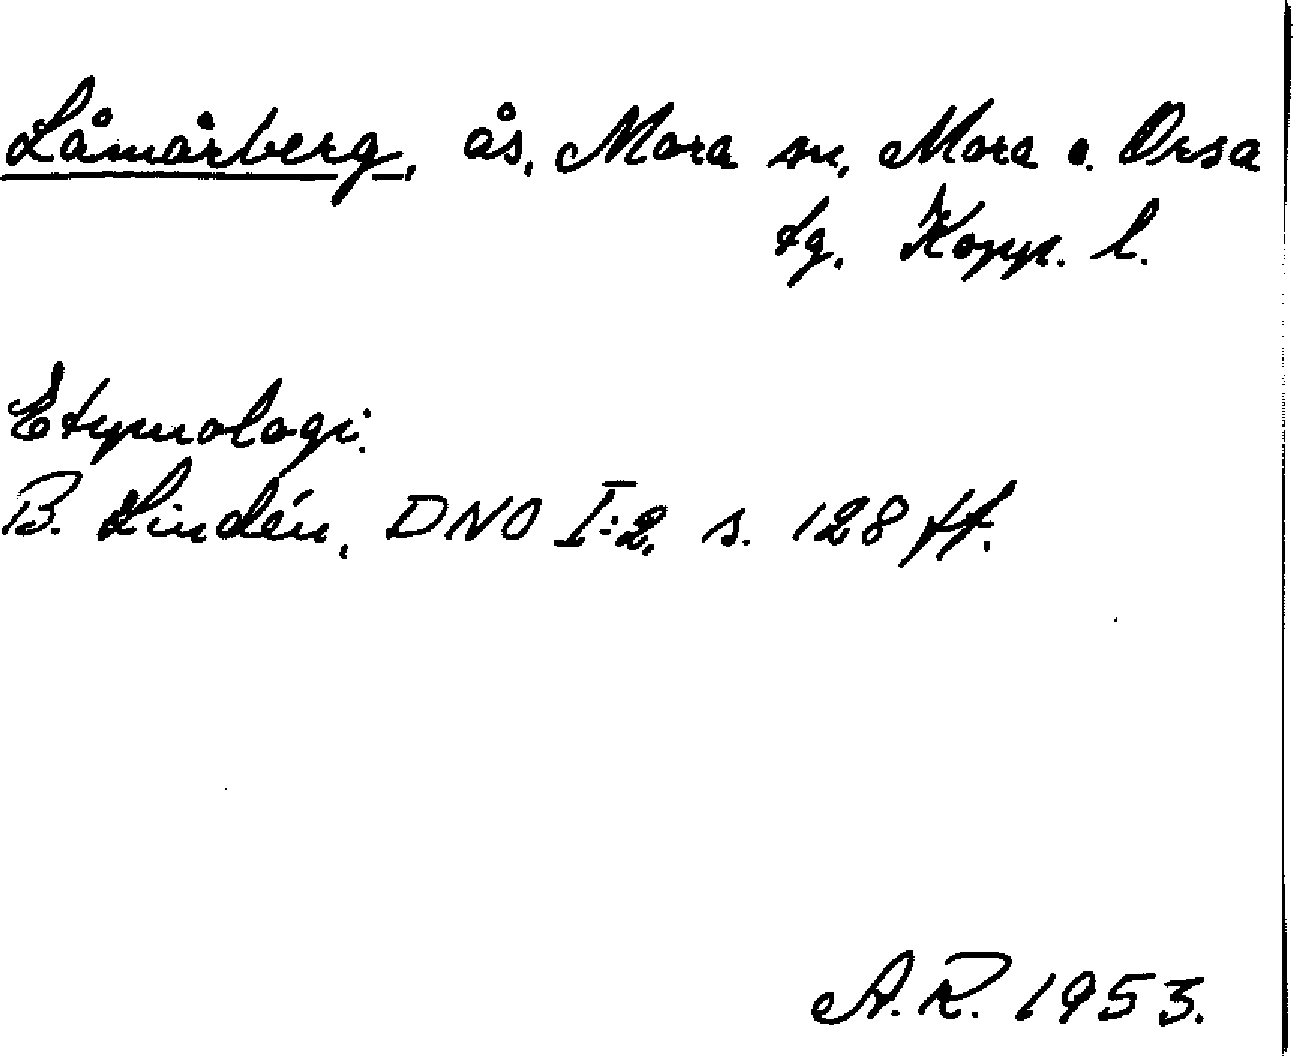 Låmårberg, ås, Mora sn, Mora o. Orsa
tg. Kopp. l.
Etymologi:
B. Lindén, DNO I:2, s. 128 ff.
A.R. 1953.